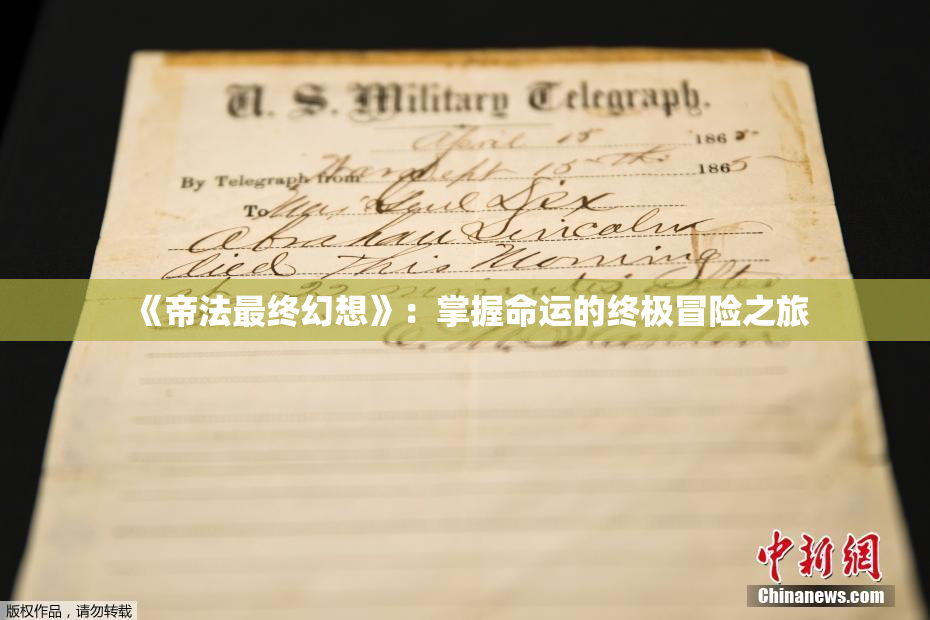 U. S. Military Telegraph.
April 15 1865
By Telegraph from War Dept 15th 1865
To Maj Genl Dix
Abraham Lincoln
died This Morning
22 minutes after
《帝法最终幻想》：掌握命运的终极冒险之旅
中新网
Chinanews.com
版权作品，请勿转载